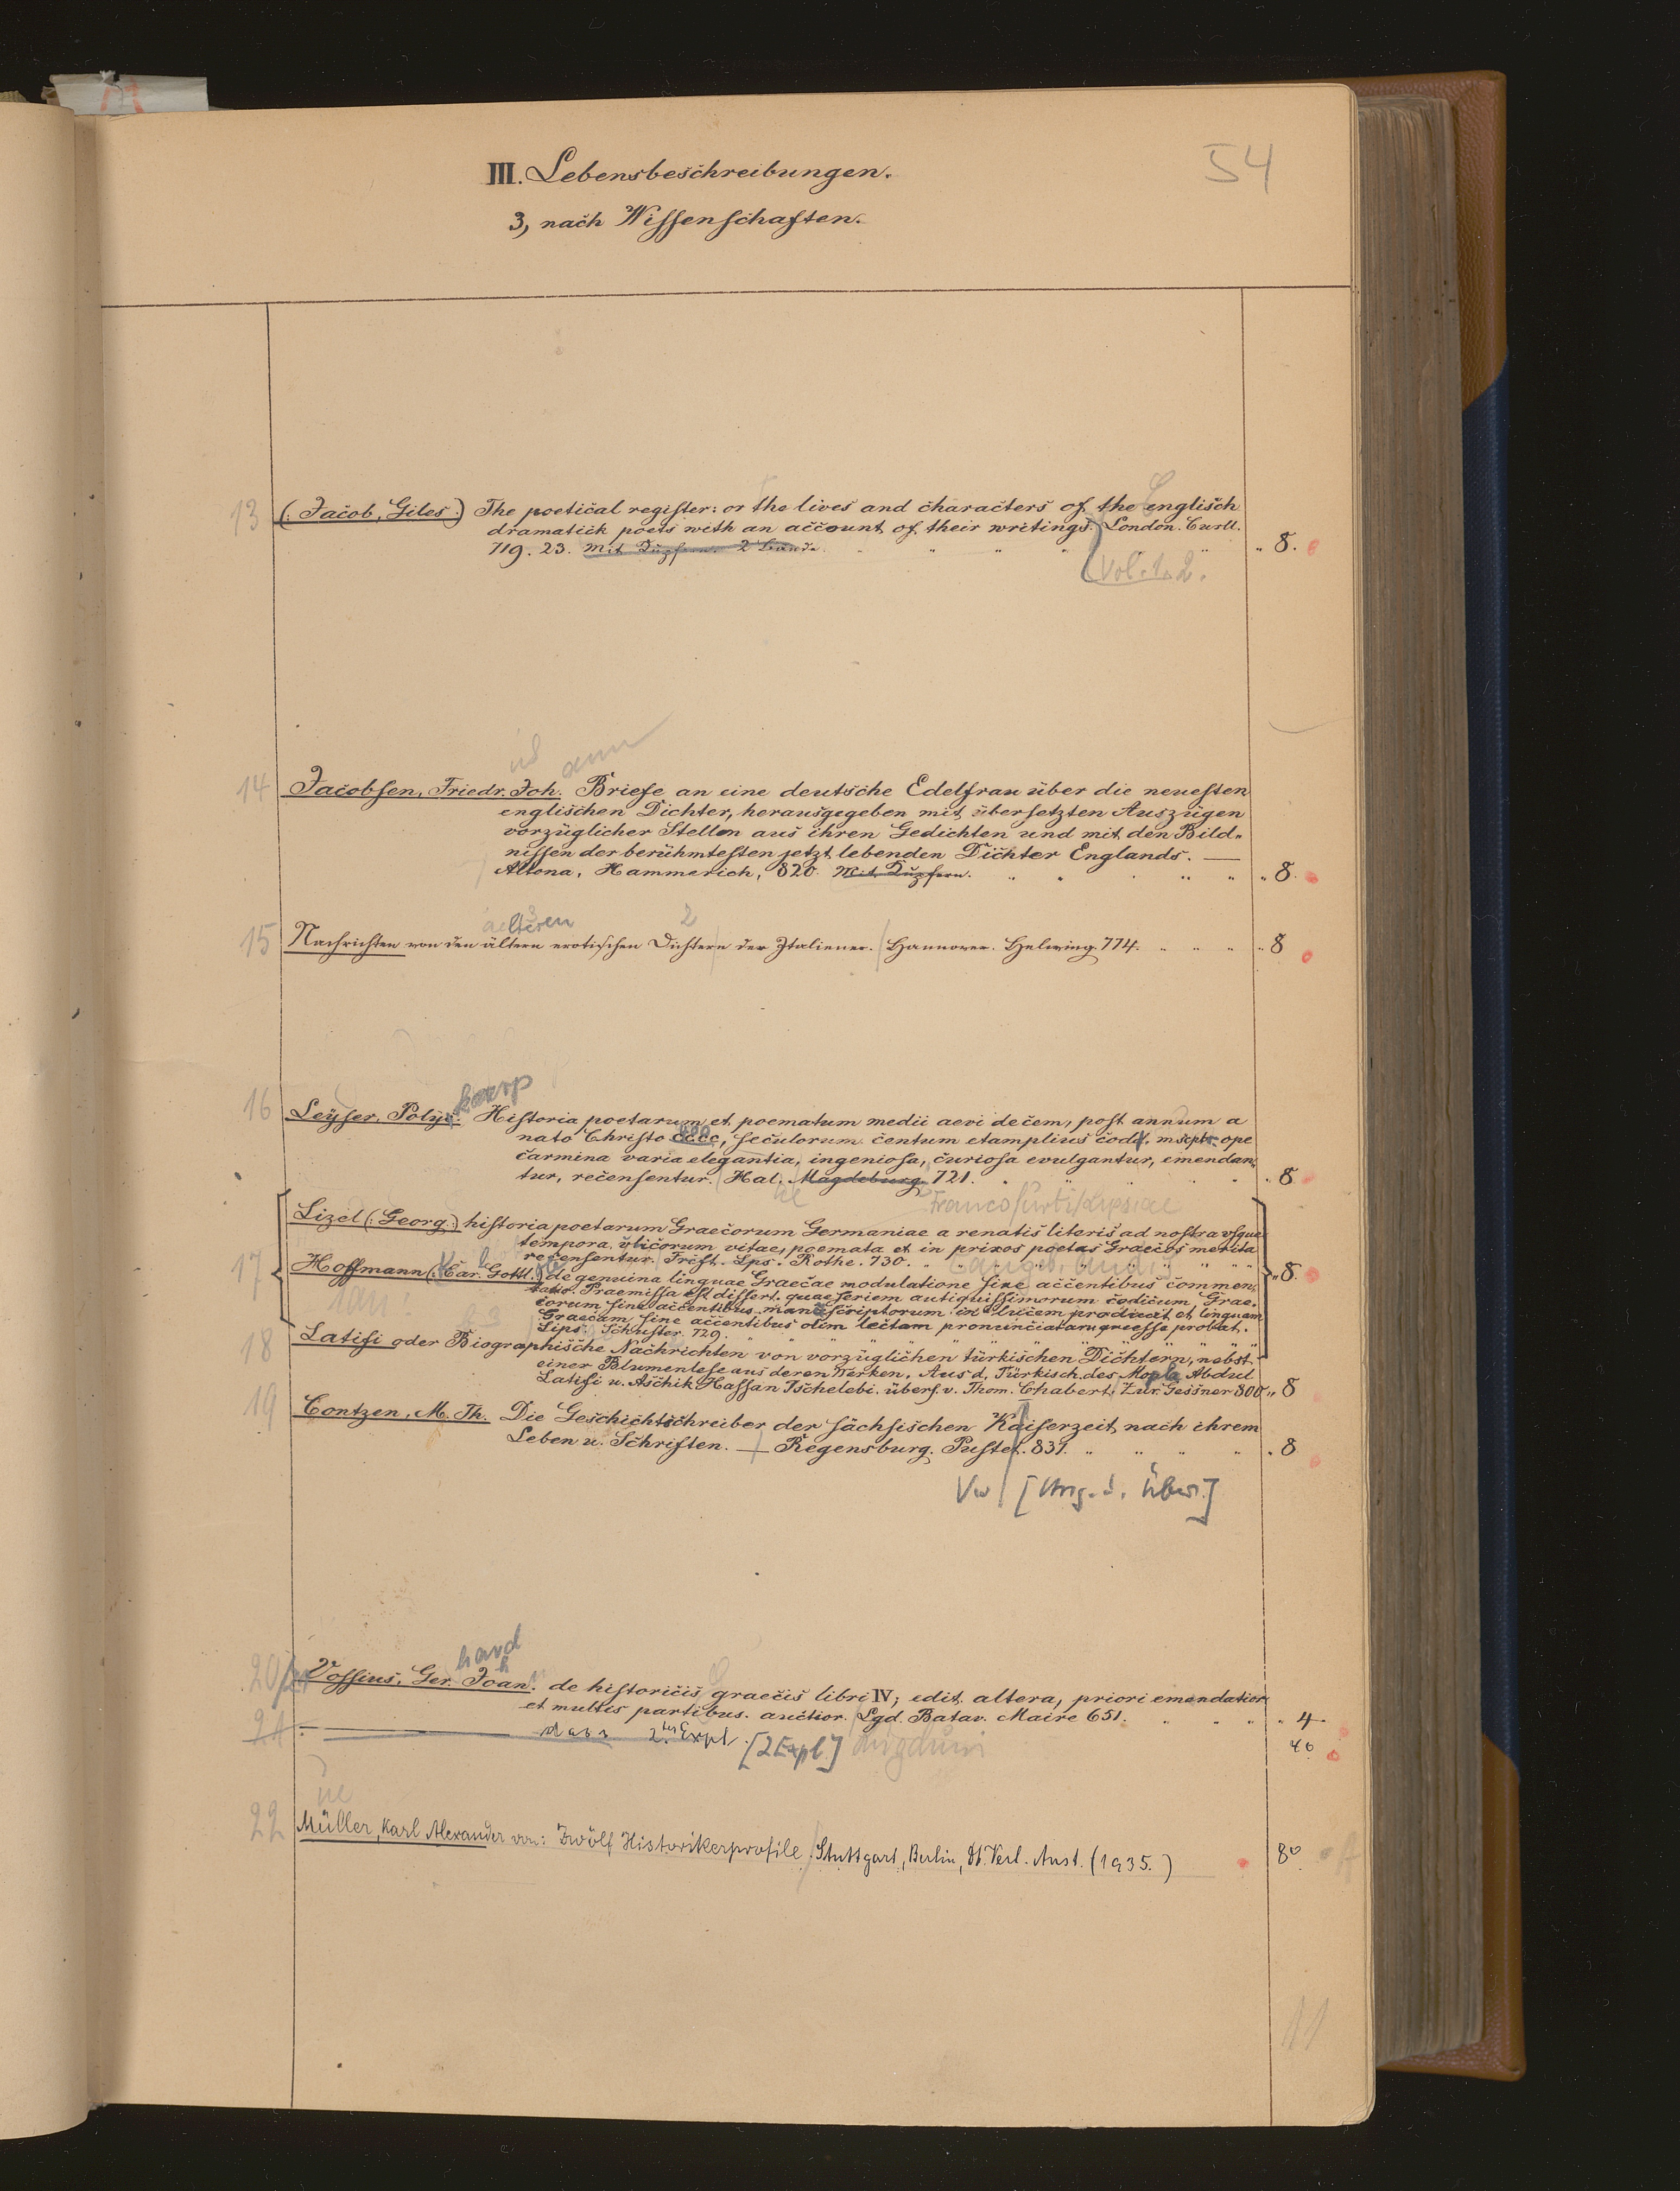 54
III. Lebensbeschreibungen.
3, nach Wissenschaften.
13 (: Jacob, Giles :) The poetical register: or the lives and characters of the englisch
dramatick poets with an account of their writings. London. Curll.
719. 23. Mit Kupfern. 2 Bände. " 8.
[Vol. 1. 2.
14 Jacobsen, Friedr. Joh. Briefe an eine deutsche Edelfrau über die neuesten
englischen Dichter, herausgegeben mit übersetzten Auszügen
vorzüglicher Stellen aus ihren Gedichten und mit den Bild-
nissen der berühmtesten jetzt lebenden Dichter Englands. —
Altona, Hammerich, 820. Mit Kupfern. " 8.
15 Nachrichten von den ältern erotischen Dichtern der Italiener. Hannover. Helwing 774. " 8
karp
16 Leyser, Polyc. Historia poetarum et poematum medii aevi decem, post annum a
nato Christo cccc, seculorum. centum et amplius codd. mscpts. ope
carmina varia elegantia, ingeniosa, curiosa evulgantur, emendan-
tur, recensentur. Hal. Magdeburg. 721. " 8
Francofurti / Lipsiae
17 Lizel (: Georg :) historia poetarum Graecorum Germaniae a renatis literis ad nostra usque
tempora. ubi corum vitae, poemata et in priscos poetas Graecos merita
recensentur. Frcft. Lps. Rothe. 730.
Hoffmann (: Car. Gottl. :) de genuina linguae Graecae modulatione sine accentibus commen-
tatio. Praemissa est dissert. quae seriem antiquissimorum codicum Grae-
corum sine accentibus manuscriptorum in lucem producit et linguam
Graecam, sine accentibus olim lectam pronunciatamque esse probat.
Lips. Schuster. 729. " 8
18 Latifi oder Biographische Nachrichten von vorzüglichen türkischen Dichtern, nebst
einer Blumenlese aus deren Werken. Aus d. Türkisch. des Mopla Abdul
Latifi u. Aschik Hassan Tschelebi. übers. v. Thom. Chabert. Zür. Gessner 800 " 8
19 Contzen, M. Th. Die Geschichtschreiber der sächsischen Kaiserzeit nach ihrem
Leben u. Schriften. — Regensburg. Pustet. 837. " 8
hard
20 Vossius, Ger. Joan. de historicis graecis libri IV; edit. altera, priori emendatior
et multis partibus. auctior. Lgd. Batav. Maire 651. " 4
21 dass 2tes Expl. [2 Expl.] 4o
22 Müller, Karl Alexander von: Zwölf Historikerprofile / Stuttgart, Berlin, Dt. Verl. Anst. (1935.) 8o
11